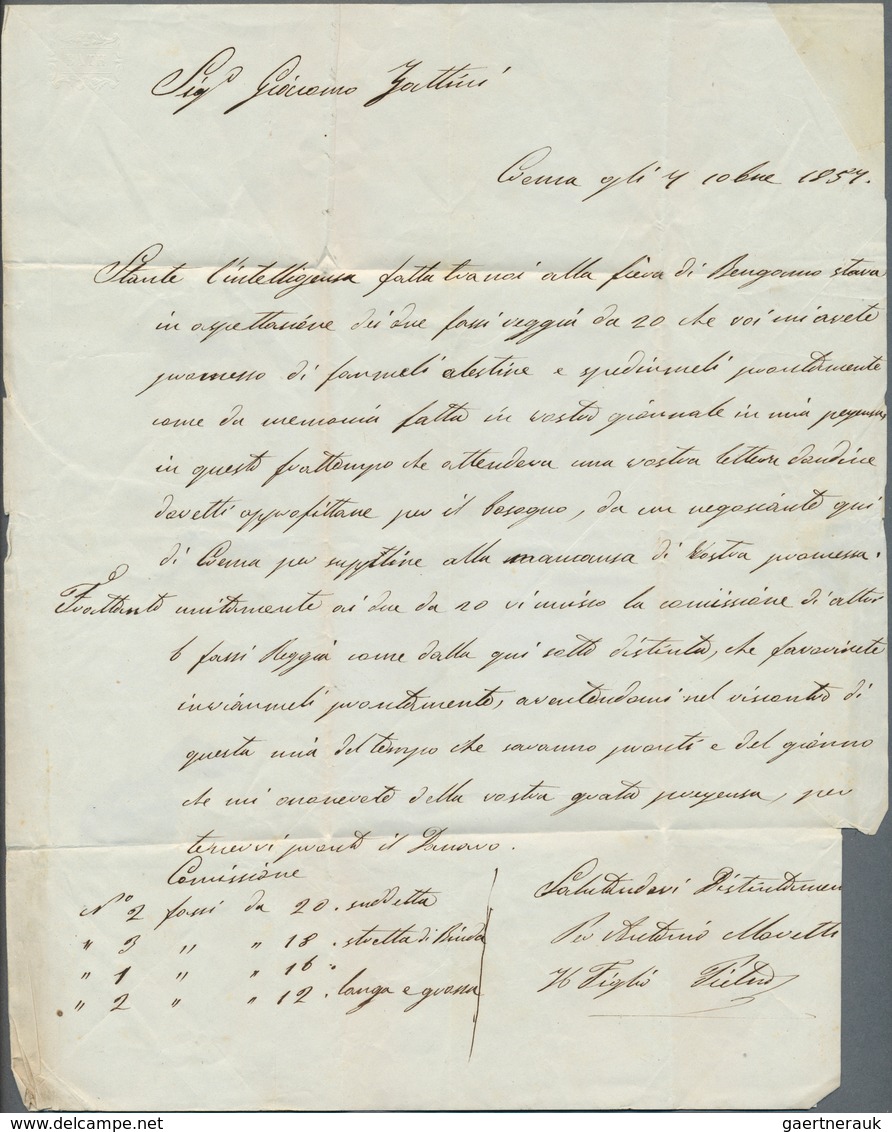 Sigr Giacomo Zattini
Crema gli 4 10bre 1857.
Stante l'intelligensa fatta tra noi alla fiera di Bergamo stava
in aspettasione dei due fassi reggia da 20 che voi mi avete
promesso di farmeli alestire e spedirmeli prontamente
come da memoria fatta in vostro giornale in mia presensa
in questo frattempo che attendeva una vostra lettera
dovetti approfittare per il bisogno, da un negosiante qui
di Crema per supplire alla mancansa di vostra promessa.
Frattanto unitamente ai due da 20 vi unisco la comissione di altri
6 fassi Reggia come dalla qui sotto distinta, che favorirete
inviarmeli prontamente, avertendomi nel riscontro di
questa mia del tempo che saranno pronti e del giorno
che mi onorerete della vostra grata presensa, per
tenervi pronto il Danaro.
Comissione
No 2 fassi da 20. suddetta
" 3 " " 18. stretta di
" 1 " " 16 "
" 2 " " 12. larga e grossa
Salutandovi Distintamen
Per Antonio
Il Figlio Pietro
gaertnerauk